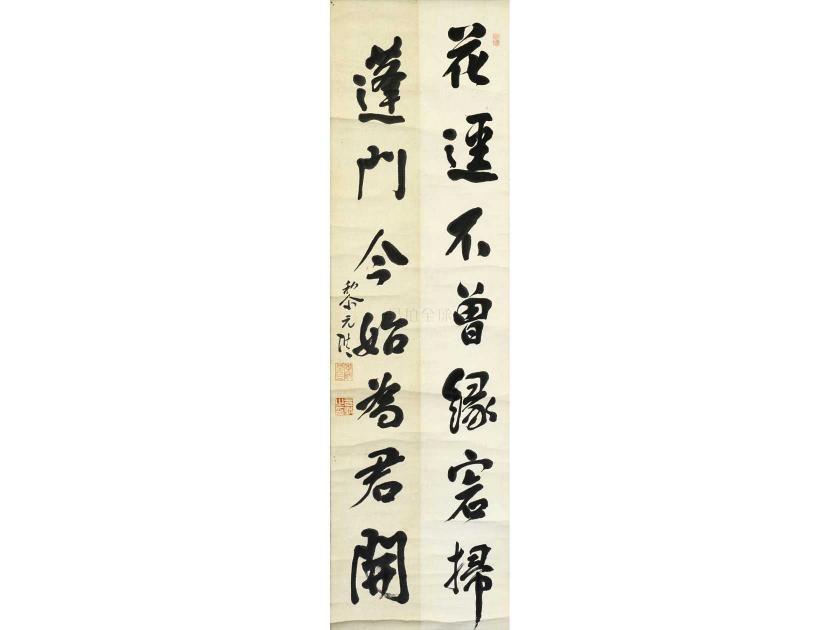 花逕不曾緣客掃
蓬門今始為君開
黎元洪